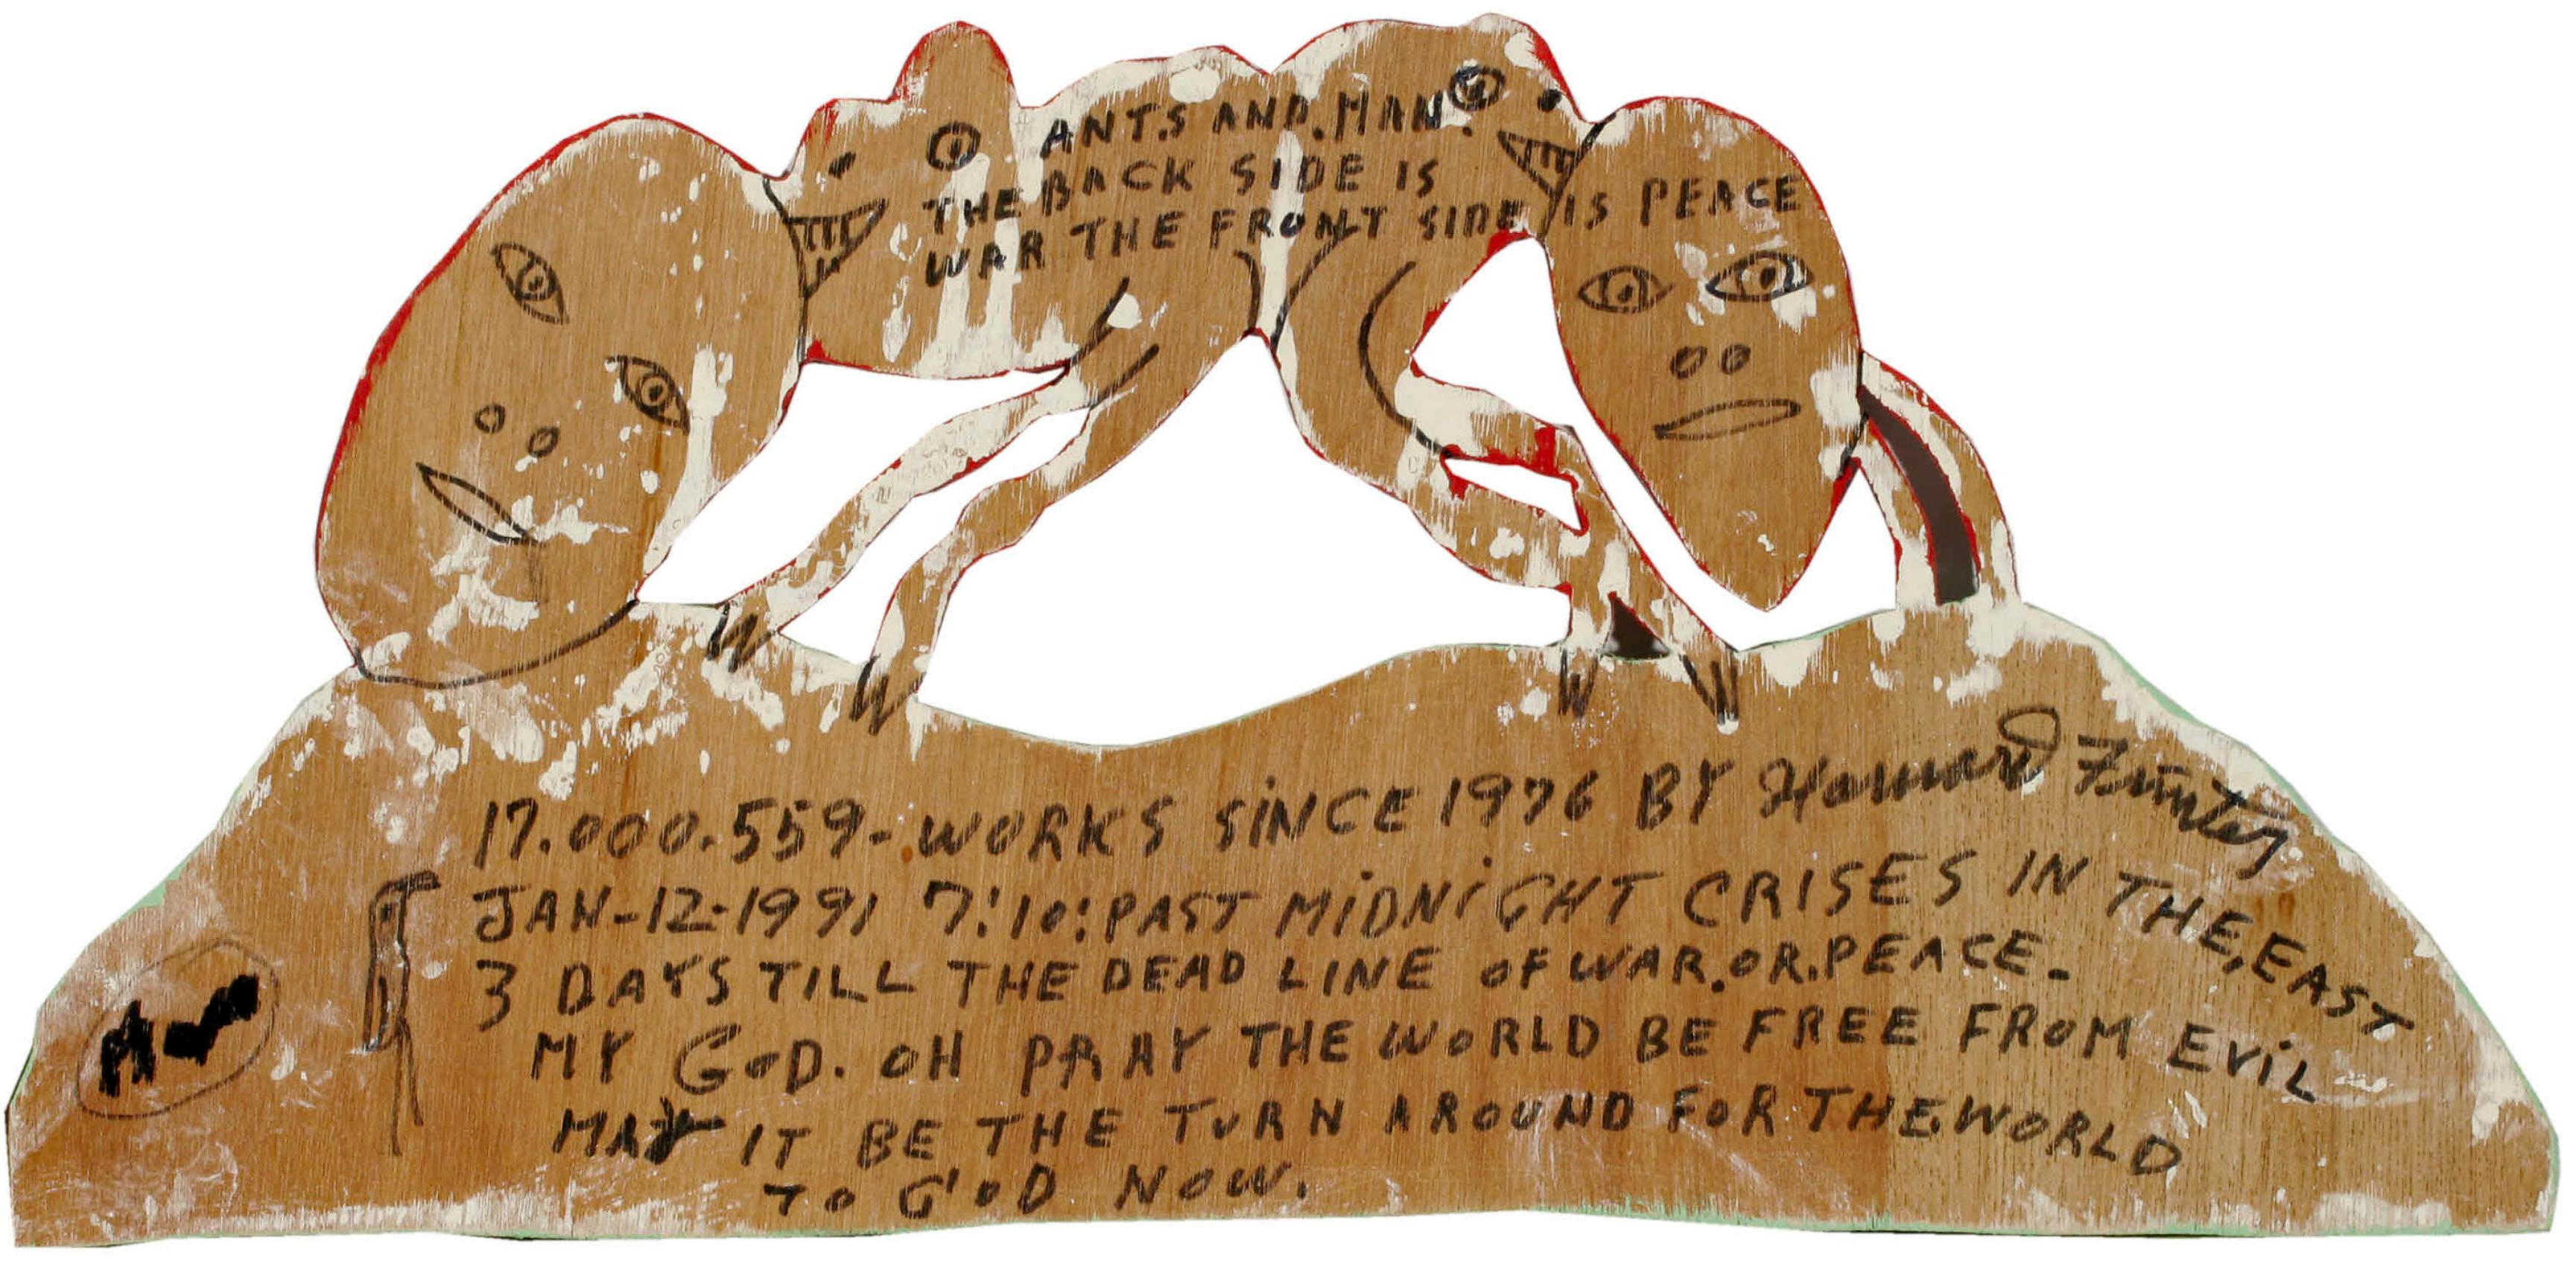 ANT.S AND.MAN.
THE BACK SIDE IS
WAR THE FRONT SIDE IS PEACE
17.000.559-WORKS SINCE 1976 BY Howard Finster
JAN-12-1991 7:10:PAST MIDNIGHT CRISES IN THE,EAST
3 DAYS TILL THE DEAD LINE OF WAR.OR.PEACE-
MY GOD. OH PRAY THE WORLD BE FREE FROM EVIL
MAY IT BE THE TURN AROUND FOR THE WORLD
TO GOD NOW.